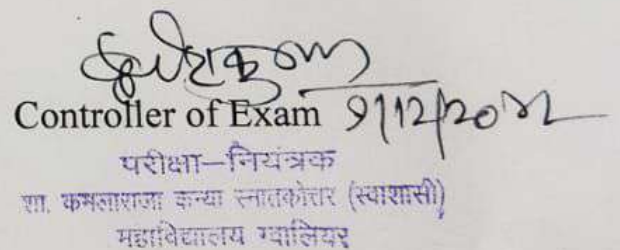 Controller of Exam 9/12/2022
परीक्षा–नियंत्रक
शा. कमलाराजा कन्या स्नातकोत्तर (स्वाशासी)
महाविद्यालय ग्वालियर